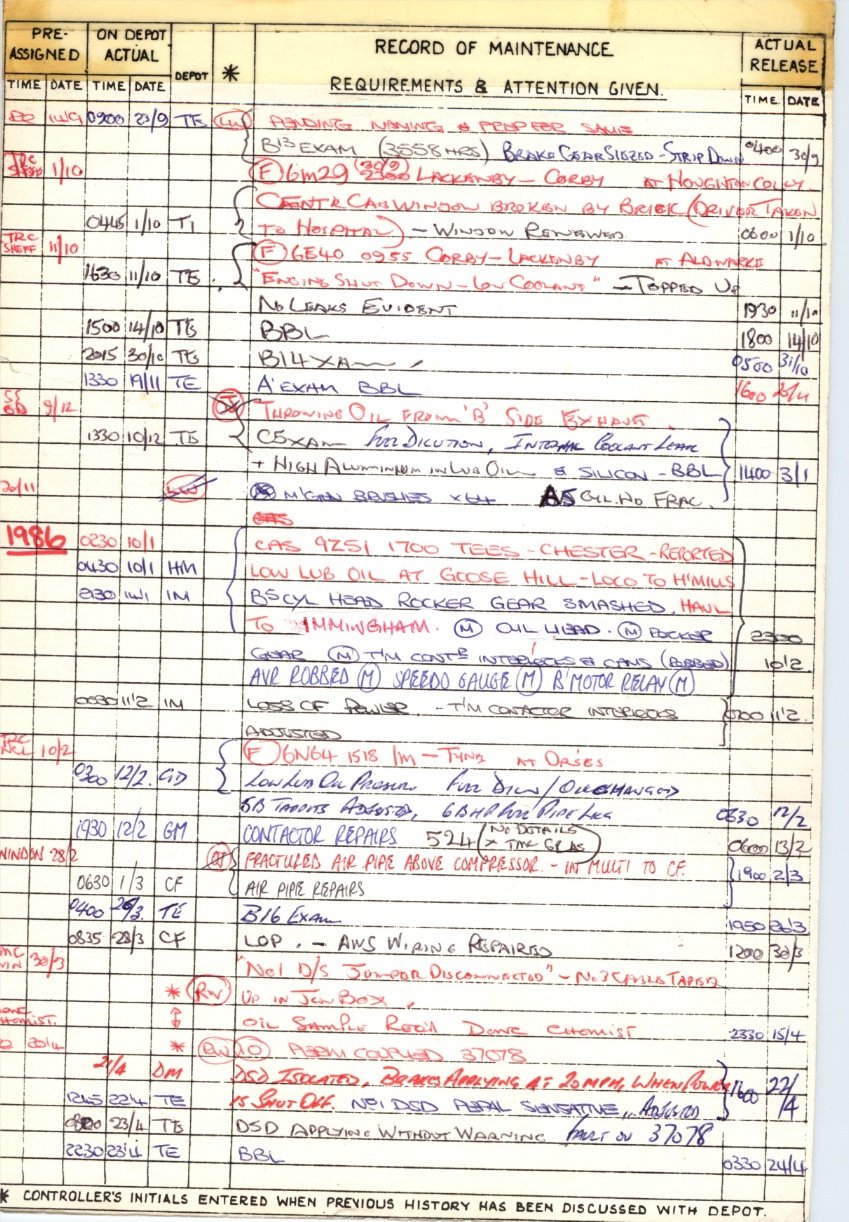 PRE- ON DEPOT RECORD OF MAINTENANCE ACTUAL
ASSIGNED ACTUAL DEPOT * REQUIREMENTS & ATTENTION GIVEN. RELEASE
TIME DATE TIME DATE TIME DATE
14/9 0900 23/9 TE PENDING NAMING & PREP FOR SAME
B13 EXAM (3558 HRS) BRAKE GEAR SIEZED - STRIP DOWN 0400 30/9
TRC 1/10 (F) 6M29 (30/9) 2300 LACKENBY - CORBY AT HOUGHTON COLLY
CENTR CAB WINDOW BROKEN BY BRICK (DRIVER TAKEN
0445 1/10 TI TO HOSPITAL) - WINDOW RENEWED 0600 1/10
TRC SHEFF 11/10 (F) 6E40 0955 CORBY - LACKENBY AT ALDWARKE
1630 11/10 TE "ENGINE SHUT DOWN - LOW COOLANT" - TOPPED UP
NO LEAKS EVIDENT 1930 11/10
1500 14/10 TE BBL 1800 14/10
2015 30/10 TE B14 XAM 0500 31/10
1330 19/11 TE A'EXAM BBL 1600
9/12 THROWING OIL FROM 'B' SIDE EXHAUST.
1330 10/12 TE C EXAM FUEL DILUTION, INTERNAL COOLANT LEAK
+ HIGH ALUMINIUM IN LUB OIL & SILICON - BBL 1400 3/1
20/11 M'GEN BRUSHES x 64 A5 CYL. HD FRAC.
1986 0230 10/1 CAS 9Z51 1700 TEES - CHESTER - REPORTED
0430 10/1 HM LOW LUB OIL AT GOOSE HILL - LOCO TO H'MILLS
2130 14/1 IM B5 CYL HEAD ROCKER GEAR SMASHED. HAUL
TO IMMINGHAM. (M) CYL HEAD. (M) ROCKER 2300
GEAR (M) T/M CONTR INTERLOCKS & CAMS (ROBBED) 10/2.
AVR ROBBED (M) SPEEDO GAUGE (M) B'MOTOR RELAY (M)
0030 11/2 IM LOSS OF POWER - T/M CONTACTOR INTERLOCKS 0700 11/2.
ADJUSTED
TRC NCL 10/2 (F) 6N64 1518 I/M - TYNE AT
0300 12/2. GD LOW LUB OIL PRESSURE FUEL DILN / OIL CHANGED
6B TAPPETS ADJUSTED, 6B HP FUEL PIPE LKG 0830 12/2
1930 12/2 GM CONTACTOR REPAIRS 524 (NO DETAILS 0600 13/2
28/2 FRACTURED AIR PIPE ABOVE COMPRESSOR. - IN MULTI TO CF. 1900 2/3
0630 1/3 CF AIR PIPE REPAIRS
0400 26/3. TE B16 EXAM 1950 26/3
0835 28/3 CF LOP. - AWS WIRING REPAIRED 1200 30/3
30/3 "NO1 D/S JUMPER DISCONNECTED" - NO. 3 CABLE TAPED
* (RW) UP IN JCN BOX,
CHEMIST. OIL SAMPLE REC'D DONC CHEMIST 2330 15/4
20/4 * COUPLED 37078
21/4 DM DSD ISOLATED, BRAKES APPLYING AT 20MPH, WHEN POWER 1600 22/4
1245 22/4 TE IS SHUT OFF. NO1 DSD PEDAL SENSATIVE, ADJUSTED
23/4 TE DSD APPLYING WITHOUT WARNING FAULT ON 37078
2230 23/4 TE BBL 0330 24/4
* CONTROLLER'S INITIALS ENTERED WHEN PREVIOUS HISTORY HAS BEEN DISCUSSED WITH DEPOT.